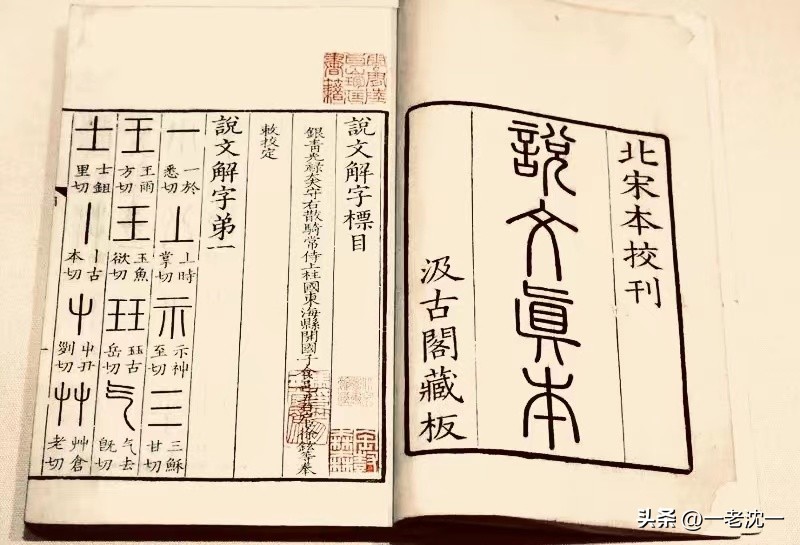 北宋本挍刊
說文真本
汲古閣藏板
說文解字標目
銀青光祿大夫守右散騎常侍上柱國東海縣開國子食邑五百戶臣徐鉉等奉
敕校定
說文解字弟一
一 一於悉切 丄 丄時掌切 示 示神至切 三 三穌甘切
王 王雨方切 玉 玉魚欲切 玨 玨古岳切 气 气去旣切
士 士鉏里切 丨 丨古本切 屮 屮丑列切 艸 艸倉老切
头条 @一老沈一